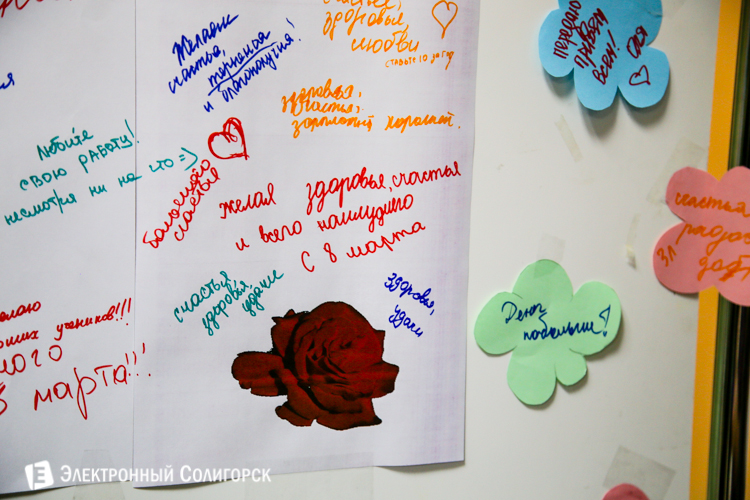 Желаем
счастья,
терпенья
и благополучия!
здоровья,
любви
ставьте 10 за год
здоровья,
счастья,
зарплаты хорошей.
Любите
свою работу!
несмотря ни на что =)
большого
счастья
Желаю здоровья, счастья
и всего наилучшего
с 8 марта
счастья
здоровья
удачи
здоровья,
удачи
учеников!!!
марта!!!
передаю
привет
всем!
Оля
Денег
побольше!
счастья
ЭЛЕКТРОННЫЙ СОЛИГОРСК